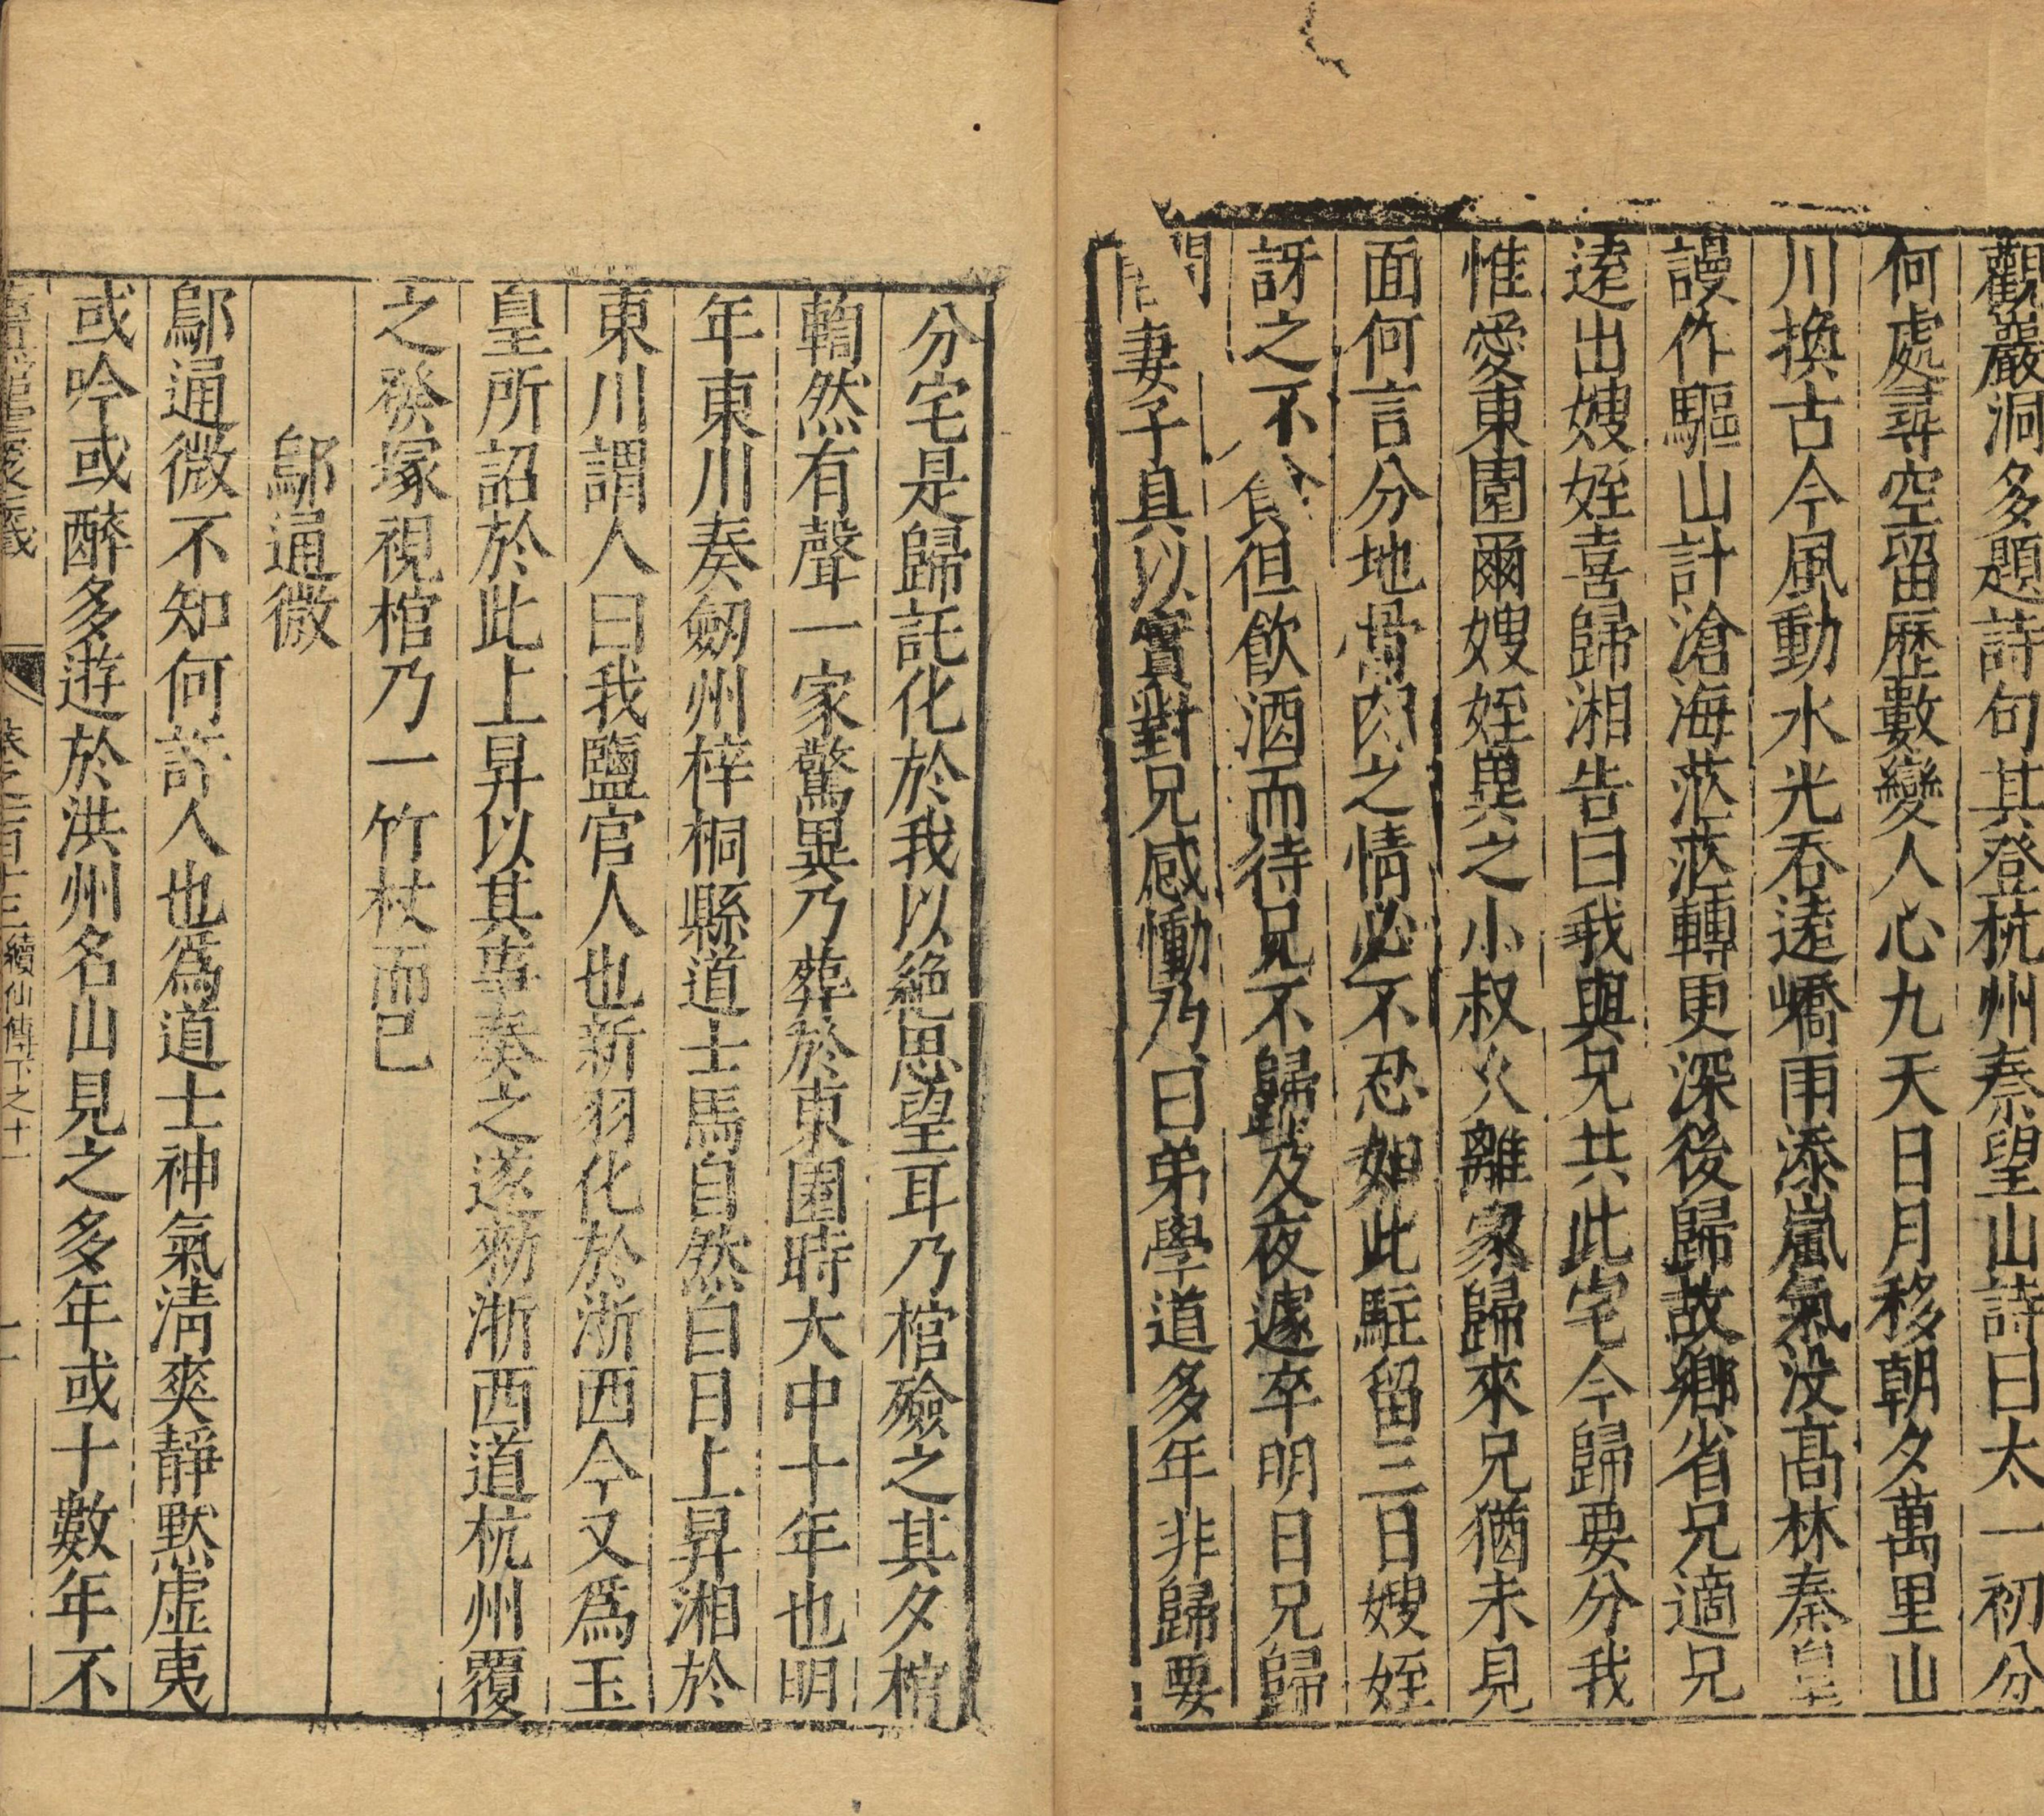 觀巖洞多題詩句其登杭州秦望山詩曰太一初分
何處尋空留歷數變人心九天日月移朝夕萬里山
川換古今風動水光吞遠嶠雨添嵐氣没髙林秦皇
謾作驅山計滄海茫茫轉更深後歸故鄉省兄適兄
逺出嫂姪喜歸湘告曰我與兄共此宅今歸要分我
惟愛東園爾嫂姪異之小叔久離家歸來兄猶未見
面何言分地骨肉之情必不忍如此駐留三日嫂姪
訝之不食但飲酒而待兄不歸及夜遽卒明日兄歸
問妻子具以實對兄感慟乃曰弟學道多年非歸要
分宅是歸託化於我以絶思望耳乃棺殮之其夕棺
輷然有聲一家驚異乃葬於東園時大中十年也明
年東川奏劒州梓桐縣道士馬自然白日上昇湘於
東川謂人曰我鹽官人也新羽化於浙西今又爲玉
皇所詔於此上昇以其事奏之遂勑浙西道杭州覆
之發塚視棺乃一竹杖而已
鄔通微
鄔通微不知何許人也爲道士神氣清爽靜默虛夷
或吟或醉多遊於洪州名山見之多年或十數年不
卷之一百十三續仙傳下之十一